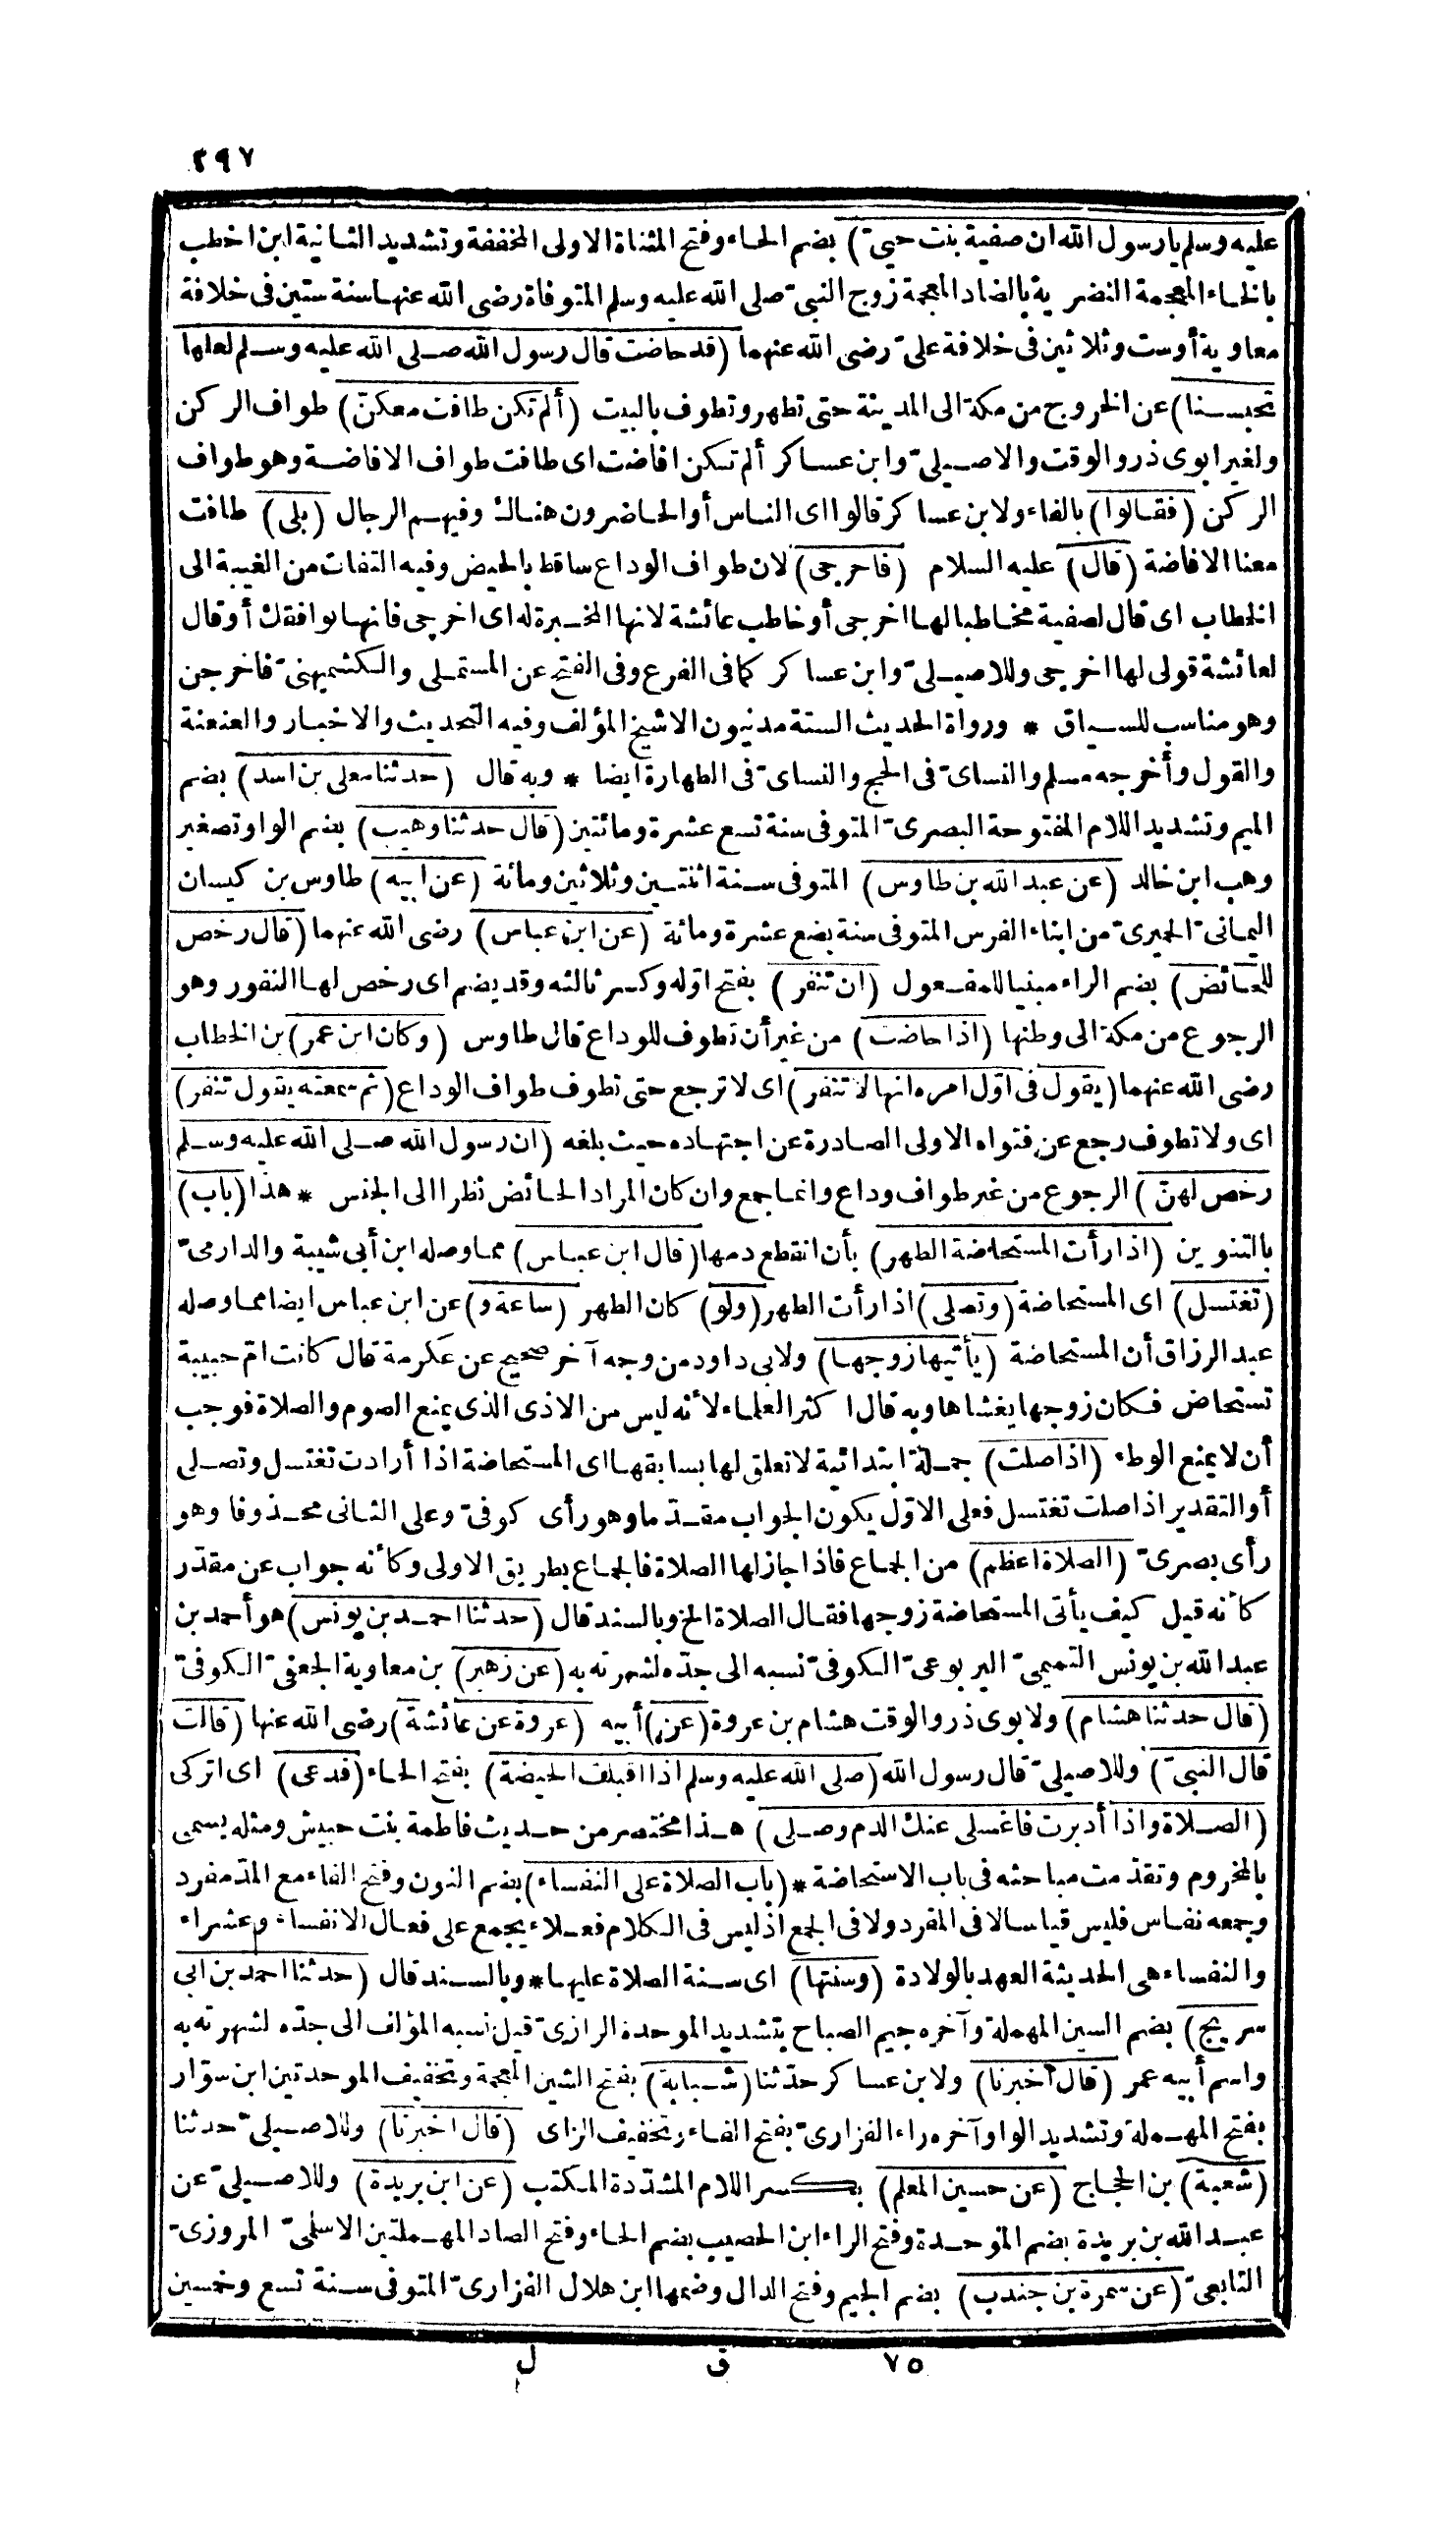 ٢٩٧
عليه وسلم يا رسول الله ان صفية بنت حييّ) بضم الحاء وفتح المثناة الاولى المخففة وتشديد الثانية ابن اخطب
بالخاء المعجمة النضرية بالضاد المعجمة زوج النبيّ صلى الله عليه وسلم المتوفاة رضى الله عنها سنة ستين فى خلافة
معاوية أوست وثلاثين فى خلافة علىّ رضى الله عنهما (قد حاضت قال رسول الله صلى الله عليه وسلم لعلها
تحبسنا) عن الخروج من مكة الى المدينة حتى تطهر وتطوف بالبيت (ألم تكن طافت معكنّ) طواف الركن
ولغير ابوى ذر والوقت والاصيلىّ وابن عساكر ألم تكن افاضت اى طافت طواف الافاضة وهو طواف
الركن (فقالوا) بالفاء ولابن عساكر قالوا اى الناس أو الحاضرون هناك وفيهم الرجال (بلى) طافت
معنا الافاضة (قال) عليه السلام (فاخرجى) لان طواف الوداع ساقط بالحيض وفيه التفات من الغيبة الى
الخطاب اى قال لصفية مخاطبا لها اخرجى أو خاطب عائشة لانها المخبرة له اى اخرجى فانها توافقك أو قال
لعائشة قولى لها اخرجى وللاصيلىّ وابن عساكر كما فى الفرع وفى الفتح عن المستملى والكشميهنىّ فاخرجن
وهو مناسب للسياق * ورواة الحديث الستة مدنيون الا شيخ المؤلف وفيه التحديث والاخبار والعنعنة
والقول وأخرجه مسلم والنساىّ فى الحج والنساىّ فى الطهارة ايضا * وبه قال (حدثنا معلى بن اسد) بضم
الميم وتشديد اللام المفتوحة البصرىّ المتوفى سنة تسع عشرة ومائتين (قال حدثنا وهيب) بضم الواو تصغير
وهب ابن خالد (عن عبد الله بن طاوس) المتوفى سنة اثنتين وثلاثين ومائة (عن ابيه) طاوس بن كيسان
اليمانىّ الحميرىّ من ابناء الفرس المتوفى سنة بضع عشرة ومائة (عن ابن عباس) رضى الله عنهما (قال رخص
للحائض) بضم الراء مبنيا للمفعول (ان تنفر) بفتح اوّله وكسر ثالثه وقد يضم اى رخص لها النفور وهو
الرجوع من مكة الى وطنها (اذا حاضت) من غير أن تطوف للوداع قال طاوس (وكان ابن عمر) بن الخطاب
رضى الله عنهما (يقول فى اوّل امره انها لا تنفر) اى لا ترجع حتى تطوف طواف الوداع (ثم سمعته يقول تنفر)
اى ولا تطوف رجع عن فتواه الاولى الصادرة عن اجتهاده حيث بلغه (ان رسول الله صلى الله عليه وسلم
رخص لهنّ) الرجوع من غير طواف وداع وانما جمع وان كان المراد الحائض نظرا الى الجنس * هذا (باب)
بالتنوين (اذا رأت المستحاضة الطهر) بأن انقطع دمها (قال ابن عباس) مما وصله ابن أبى شيبة والدارمىّ
(تغتسل) اى المستحاضة (وتصلى) اذا رأت الطهر (ولو) كان الطهر (ساعة و) عن ابن عباس ايضا مما وصله
عبد الرزاق أن المستحاضة (يأتيها زوجها) ولابى داود من وجه آخر صحيح عن عكرمة قال كانت امّ حبيبة
تستحاض فكان زوجها يغشاها وبه قال اكثر العلماء لأنه ليس من الاذى الذى يمنع الصوم والصلاة فوجب
أن لا يمنع الوطء (اذا صلت) جملة ابتدائية لا تعلق لها بسابقها اى المستحاضة اذا أرادت تغتسل وتصلى
أو التقدير اذا صلت تغتسل فعلى الاوّل يكون الجواب مقدّما وهو رأى كوفىّ وعلى الثانى محذوفا وهو
رأى بصرىّ (الصلاة اعظم) من الجماع فاذا جاز لها الصلاة فالجماع بطريق الاولى وكأنه جواب عن مقدّر
كأنه قيل كيف يأتى المستحاضة زوجها فقال الصلاة الخ وبالسند قال (حدثنا احمد بن يونس) هو أحمد بن
عبد الله بن يونس التميمىّ اليربوعىّ الكوفىّ نسبه الى جدّه لشهرته به (عن زهير) بن معاوية الجعفىّ الكوفىّ
(قال حدثنا هشام) ولابوى ذر والوقت هشام بن عروة (عن) أبيه (عروة عن عائشة) رضى الله عنها (قالت
قال النبىّ) وللاصيلىّ قال رسول الله (صلى الله عليه وسلم اذا اقبلت الحيضة) بفتح الحاء (فدعى) اى اتركى
(الصلاة واذا أدبرت فاغسلى عنك الدم وصلى) هذا مختصر من حديث فاطمة بنت حبيش ومثله يسمى
بالمخروم وتقدّمت مباحثه فى باب الاستحاضة * (باب الصلاة على النفساء) بضم النون وفتح الفاء مع المدّ مفرد
وجمعه نفاس فليس قياسا لا فى المفرد ولا فى الجمع اذ ليس فى الكلام فعلاء يجمع على فعال الا نفساء وعشراء
والنفساء هى الحديثة العهد بالولادة (وسنتها) اى سنة الصلاة عليها * وبالسند قال (حدثنا احمد بن ابى
سريج) بضم السين المهملة وآخره جيم الصباح بتشديد الموحدة الرازىّ قيل نسبه المؤلف الى جدّه لشهرته به
واسم أبيه عمر (قال أخبرنا) ولابن عساكر حدّثنا (شبابة) بفتح الشين المعجمة وتخفيف الموحدتين ابن سوّار
بفتح المهملة وتشديد الواو آخره راء الفزارىّ بفتح الفاء وتخفيف الزاى (قال اخبرنا) وللاصيلىّ حدثنا
(شعبة) بن الحجاج (عن حسين المعلم) بكسر اللام المشدّدة المكتب (عن ابن بريدة) وللاصيلىّ عن
عبد الله بن بريدة بضم الموحدة وفتح الراء ابن الحصيب بضم الحاء وفتح الصاد المهملتين الاسلمىّ المروزىّ
التابعىّ (عن سمرة بن جندب) بضم الجيم وفتح الدال وضمها ابن هلال الفزارىّ المتوفى سنة تسع وخمسين
٧٥ ق ل